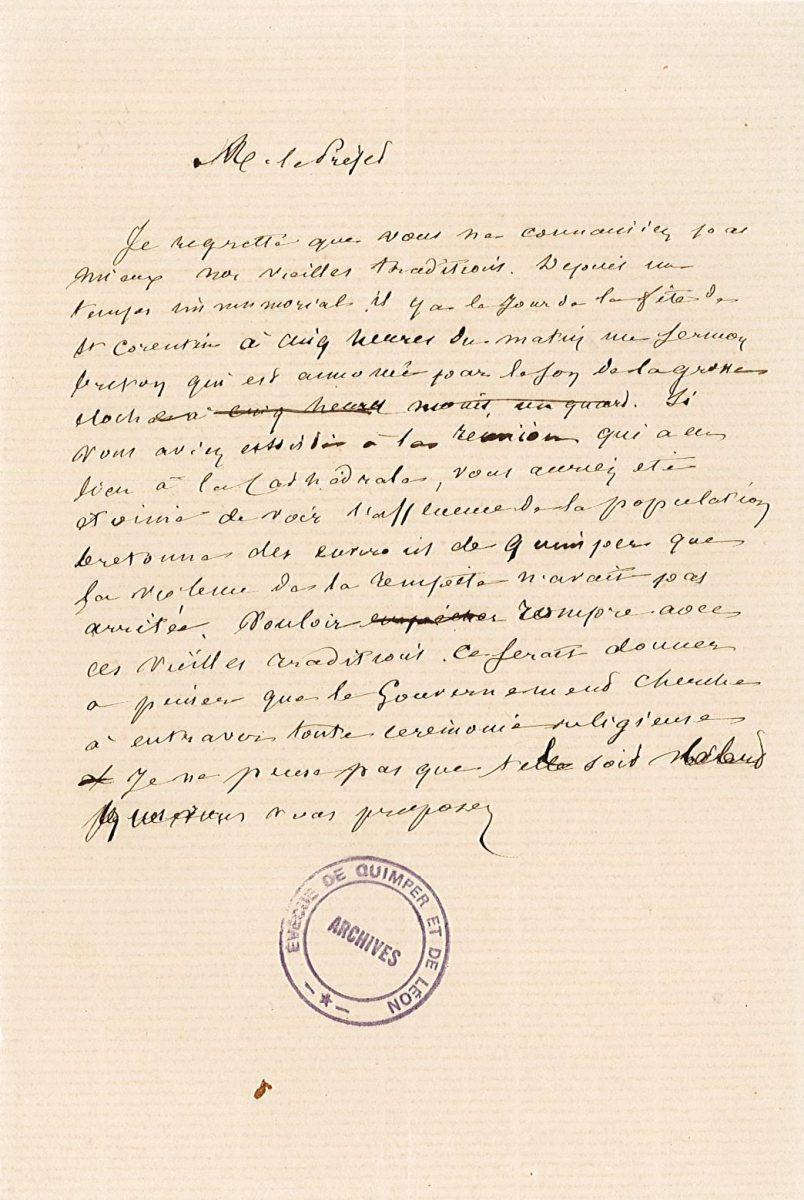 M. le Préfet
Je regrette que vous ne connaissiez pas
mieux nos vieilles traditions. Depuis un
temps immémorial il y a le jour de la fête de
St Corentin à cinq heures du matin un sermon
breton qui est annoncé par le son de la grosse
cloche à cinq heures moins un quart. Si
vous aviez assisté à la réunion qui a eu
lieu à la Cathédrale, vous auriez été
étonné de voir l'affluence de la population
bretonne des environs de Quimper que
la violence de la tempête n'avait pas
arrêtée. Vouloir empêcher rompre avec
ces vieilles traditions. Ce serait donner
à penser que le Gouvernement cherche
à entraver toute cérémonie religieuse
Je ne pense pas que telle soit
vous vous proposez
EVÊCHÉ DE QUIMPER ET DE LÉON
ARCHIVES